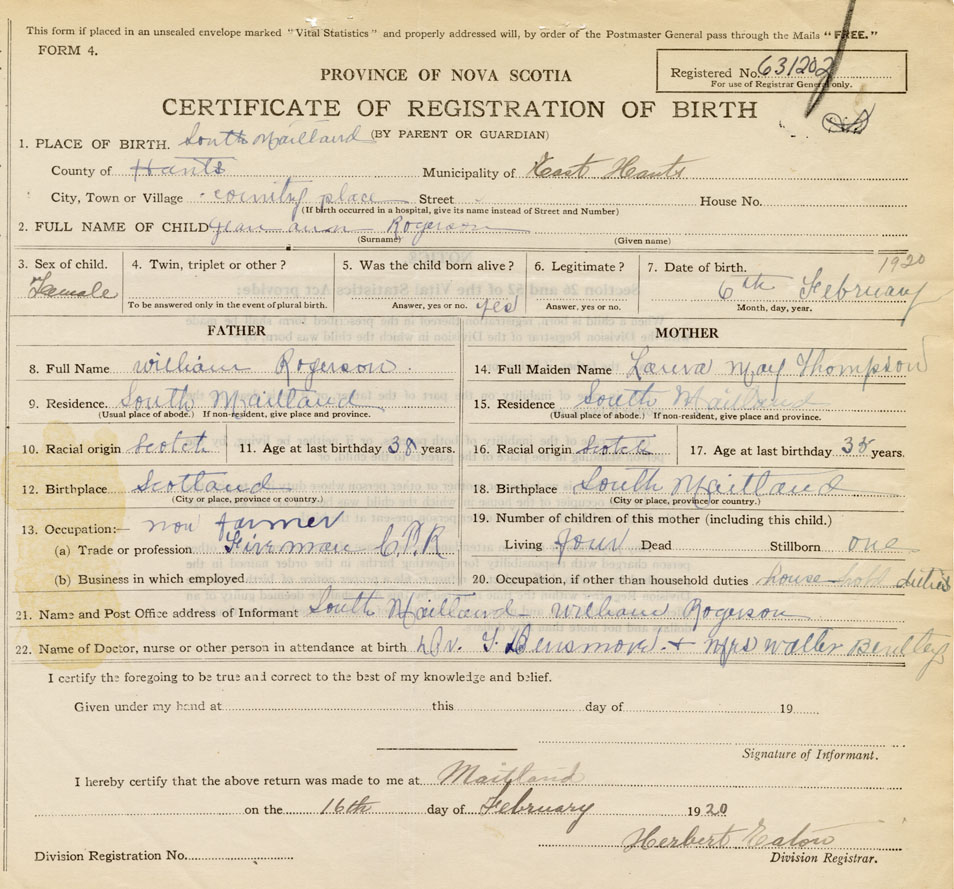 This form if placed in an unsealed envelope marked "Vital Statistics" and properly addressed will, by order of the Postmaster General pass through the Mails "FREE."
FORM 4.
PROVINCE OF NOVA SCOTIA
Registered No. 631202
For use of Registrar General only.
CERTIFICATE OF REGISTRATION OF BIRTH
(BY PARENT OR GUARDIAN)
1. PLACE OF BIRTH. South Maitland
County of Hants Municipality of East Hants
City, Town or Village country place Street House No.
(If birth occurred in a hospital, give its name instead of Street and Number)
2. FULL NAME OF CHILD Jean ann Rogerson
(Surname) (Given name)
3. Sex of child. 4. Twin, triplet or other? 5. Was the child born alive? 6. Legitimate? 7. Date of birth. 1920
Female 6th February
To be answered only in the event of plural birth. Answer, yes or no. yes Answer, yes or no. Month, day, year.
FATHER MOTHER
8. Full Name william Rogerson. 14. Full Maiden Name Laura May Thompson
9. Residence. South Maitland 15. Residence South Maitland
(Usual place of abode.) If non-resident, give place and province. (Usual place of abode.) If non-resident, give place and province.
10. Racial origin Scotch 11. Age at last birthday 38 years. 16. Racial origin Scotch 17. Age at last birthday 35 years.
12. Birthplace Scotland 18. Birthplace South Maitland
(City or place, province or country.) (City or place, province or country.)
13. Occupation:— now farmer 19. Number of children of this mother (including this child.)
(a) Trade or profession Fireman C.P.R Living four Dead Stillborn one
(b) Business in which employed 20. Occupation, if other than household duties house hold duties
21. Name and Post Office address of Informant South Maitland - william Rogerson
22. Name of Doctor, nurse or other person in attendance at birth Dr. & Mrs Walter
I certify the foregoing to be true and correct to the best of my knowledge and belief.
Given under my hand at this day of 19
Signature of Informant.
I hereby certify that the above return was made to me at Maitland
on the 16th day of February 1920
Herbert Eaton
Division Registration No. Division Registrar.